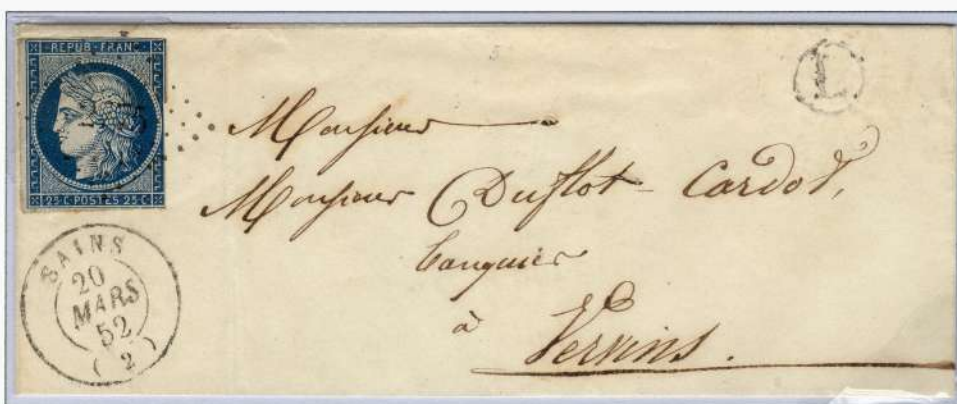 REPUB·FRANC
25·C·POSTES·25·C
L
Monsieur
Monsieur Duflot-Cardot,
banquier
à
Vervins.
SAINS
20
MARS
52
(2)